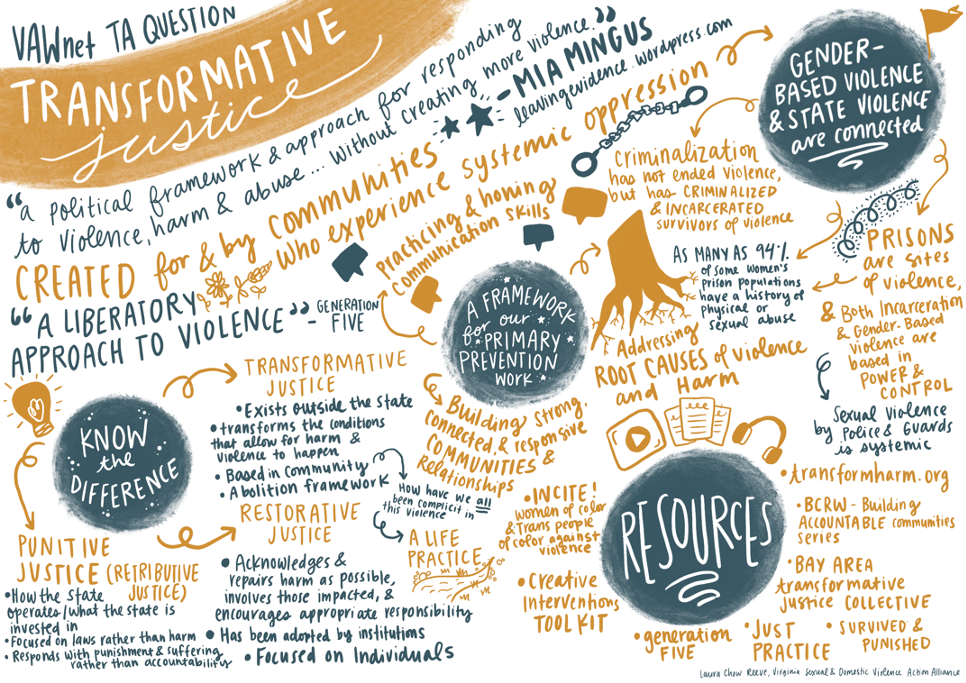 VAWnet TA QUESTION
TRANSFORMATIVE
justice
"a political framework & approach for responding
to violence, harm & abuse... without creating more violence."
- MIA MINGUS
leavingevidence.wordpress.com
CREATED for & by communities
who experience systemic oppression
"A LIBERATORY
APPROACH TO VIOLENCE" - GENERATION
FIVE
GENDER-
BASED VIOLENCE
& STATE VIOLENCE
are connected
Criminalization
has not ended violence,
but has CRIMINALIZED
& INCARCERATED
survivors of violence
AS MANY AS 94%
of some women's
prison populations
have a history of
physical or
sexual abuse
PRISONS
are sites
of violence,
& Both Incarceration
& Gender-Based
violence are
based in
POWER &
CONTROL
Sexual violence
by Police & Guards
is systemic
A FRAMEWORK
for our
PRIMARY
PREVENTION
WORK
Practicing & honing
communication skills
Addressing
ROOT CAUSES of violence
and Harm
Building strong,
connected, & responsive
COMMUNITIES &
Relationships
KNOW
the
DIFFERENCE
TRANSFORMATIVE
JUSTICE
• Exists outside the state
• transforms the conditions
that allow for harm &
violence to happen
• Based in Community
• Abolition framework
How have we all
been complicit in
this violence
A LIFE
PRACTICE
RESTORATIVE
JUSTICE
• Acknowledges &
repairs harm as possible,
involves those impacted, &
encourages appropriate responsibility
• Has been adopted by institutions
• Focused on Individuals
PUNITIVE
JUSTICE (RETRIBUTIVE
JUSTICE)
• How the State
operates/What the state is
invested in
• Focused on laws rather than harm
• Responds with punishment & suffering
rather than accountability
RESOURCES
• INCITE!
women of color
& Trans people
of color against
violence
• Creative
Interventions
TOOLKIT
• generation
FIVE
• JUST
PRACTICE
• SURVIVED &
PUNISHED
• BAY AREA
transformative
justice COLLECTIVE
• BCRW - Building
ACCOUNTABLE communities
series
• transformharm.org
Laura Chow Reeve, Virginia Sexual & Domestic Violence Action Alliance